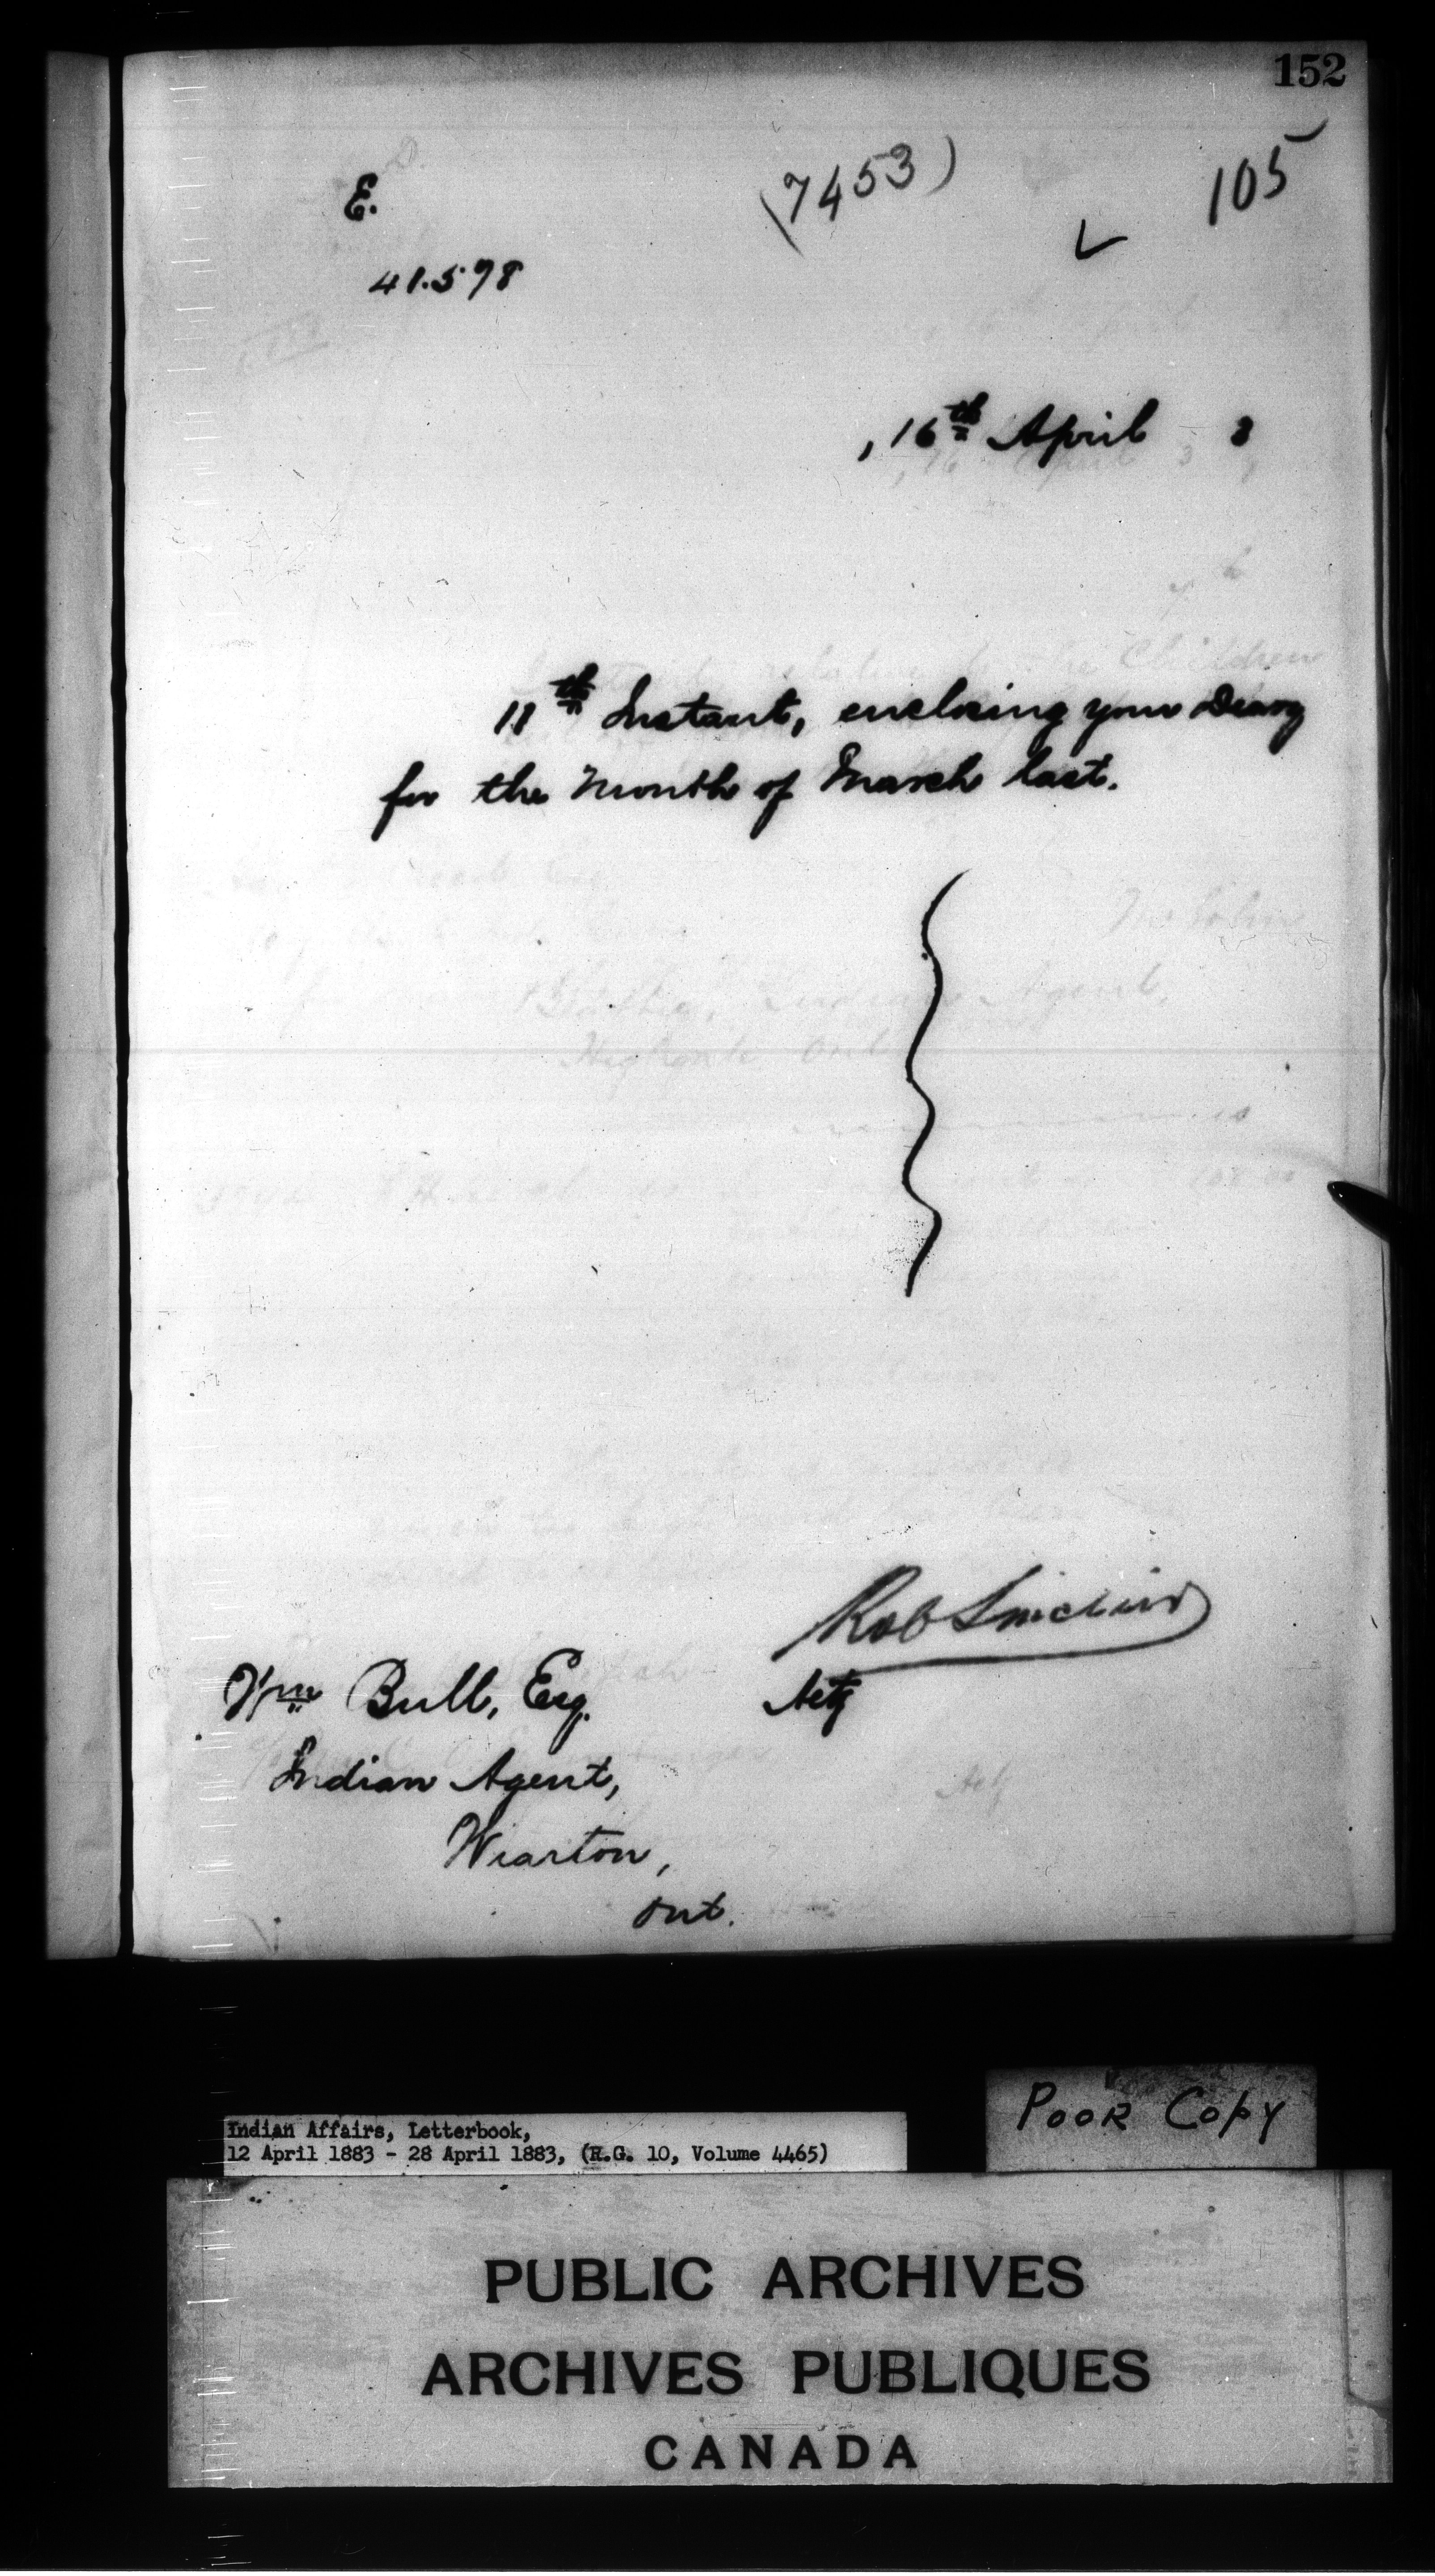 152
E. (7453) 105
41.598
, 16th April 3
11th Instant, enclosing your Diary
for the Month of March last.
Rob Sinclair
Wm Bull, Esq. Actg
Indian Agent,
Wiarton,
Ont.
Poor Copy
Indian Affairs, Letterbook,
12 April 1883 - 28 April 1883, (R.G. 10, Volume 4465)
PUBLIC ARCHIVES
ARCHIVES PUBLIQUES
CANADA